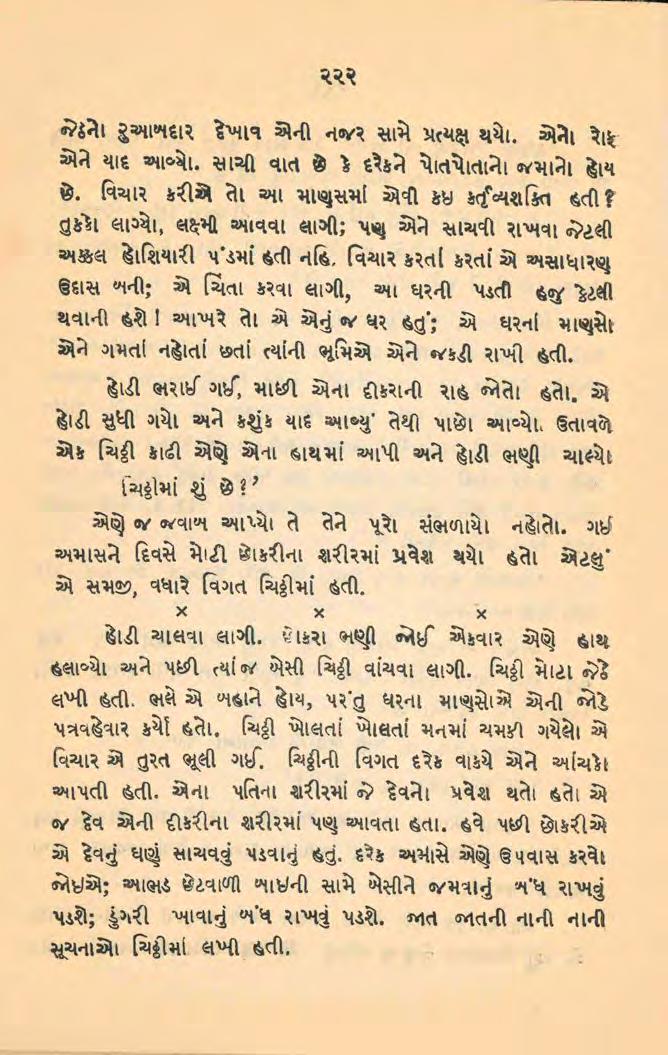 ૨૨૨
જેઠનો રુઆબદાર દેખાવ એની નજર સામે પ્રત્યક્ષ થયો. એનો રોફ
એને યાદ આવ્યો. સાચી વાત છે કે દરેકને પોતપોતાનો જમાનો હોય
છે. વિચાર કરીએ તો આ માણસમાં એવી કઇ કર્તૃવ્યશક્તિ હતી ?
તુક્કો લાગ્યો, લક્ષ્મી આવવા લાગી; પણ એને સાચવી રાખવા જેટલી
અક્કલ હોશિયારી પંડમાં હતી નહિ. વિચાર કરતાં કરતાં એ અસાધારણ
ઉદાસ બની; એ ચિંતા કરવા લાગી, આ ઘરની પડતી હજુ કેટલી
થવાની હશે ! આખરે તો એ એનું જ ઘર હતું; એ ઘરનાં માણસો
એને ગમતાં નહોતાં છતાં ત્યાંની ભૂમિએ એને જકડી રાખી હતી.
હોડી ભરાઈ ગઈ, માછી એના દીકરાની રાહ જોતો હતો. એ
હોડી સુધી ગયો અને કશુંક યાદ આવ્યું તેથી પાછો આવ્યો. ઉતાવળે
એક ચિઠ્ઠી કાઢી એણે એના હાથમાં આપી અને હોડી ભણી ચાલ્યો
ચિઠ્ઠીમાં શું છે ?’
એણે જ જવાબ આપ્યો તે તેને પૂરો સંભળાયો નહોતો. ગઈ
અમાસને દિવસે મોટી છોકરીના શરીરમાં પ્રવેશ થયો હતો એટલું
એ સમજી, વધારે વિગત ચિઠ્ઠીમાં હતી.
× × ×
હોડી ચાલવા લાગી. છોકરા ભણી જોઈ એકવાર એણે હાથ
હલાવ્યો અને પછી ત્યાંજ બેસી ચિઠ્ઠી વાંચવા લાગી. ચિઠ્ઠી મોટા જેઠે
લખી હતી. ભલે એ બહાને હોય, પરંતુ ઘરના માણસોએ એની જોડે
પત્રવહેવાર કર્યો હતો. ચિઠ્ઠી ખોલતાં ખોલતાં મનમાં ચમકી ગયેલો એ
વિચાર એ તુરત ભૂલી ગઈ. ચિઠ્ઠીની વિગત દરેક વાક્યે એને આંચકો
આપતી હતી. એના પતિના શરીરમાં જે દેવનો પ્રવેશ થતો હતો એ
જ દેવ એની દીકરીના શરીરમાં પણ આવતા હતા. હવે પછી છોકરીએ
એ દેવનું ઘણું સાચવવું પડવાનું હતું. દરેક અમાસે એણે ઉપવાસ કરવો
જોઇએ; આભડ છેટવાળી બાઇની સામે બેસીને જમવાનું બંધ રાખવું
પડશે; ડુંગરી ખાવાનું બંધ રાખવું પડશે. જાત જાતની નાની નાની
સૂચનાઓ ચિઠ્ઠીમાં લખી હતી.